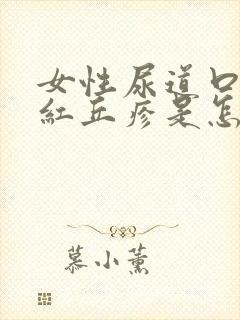 女性尿道口
紅丘疹是怎
慕小薰